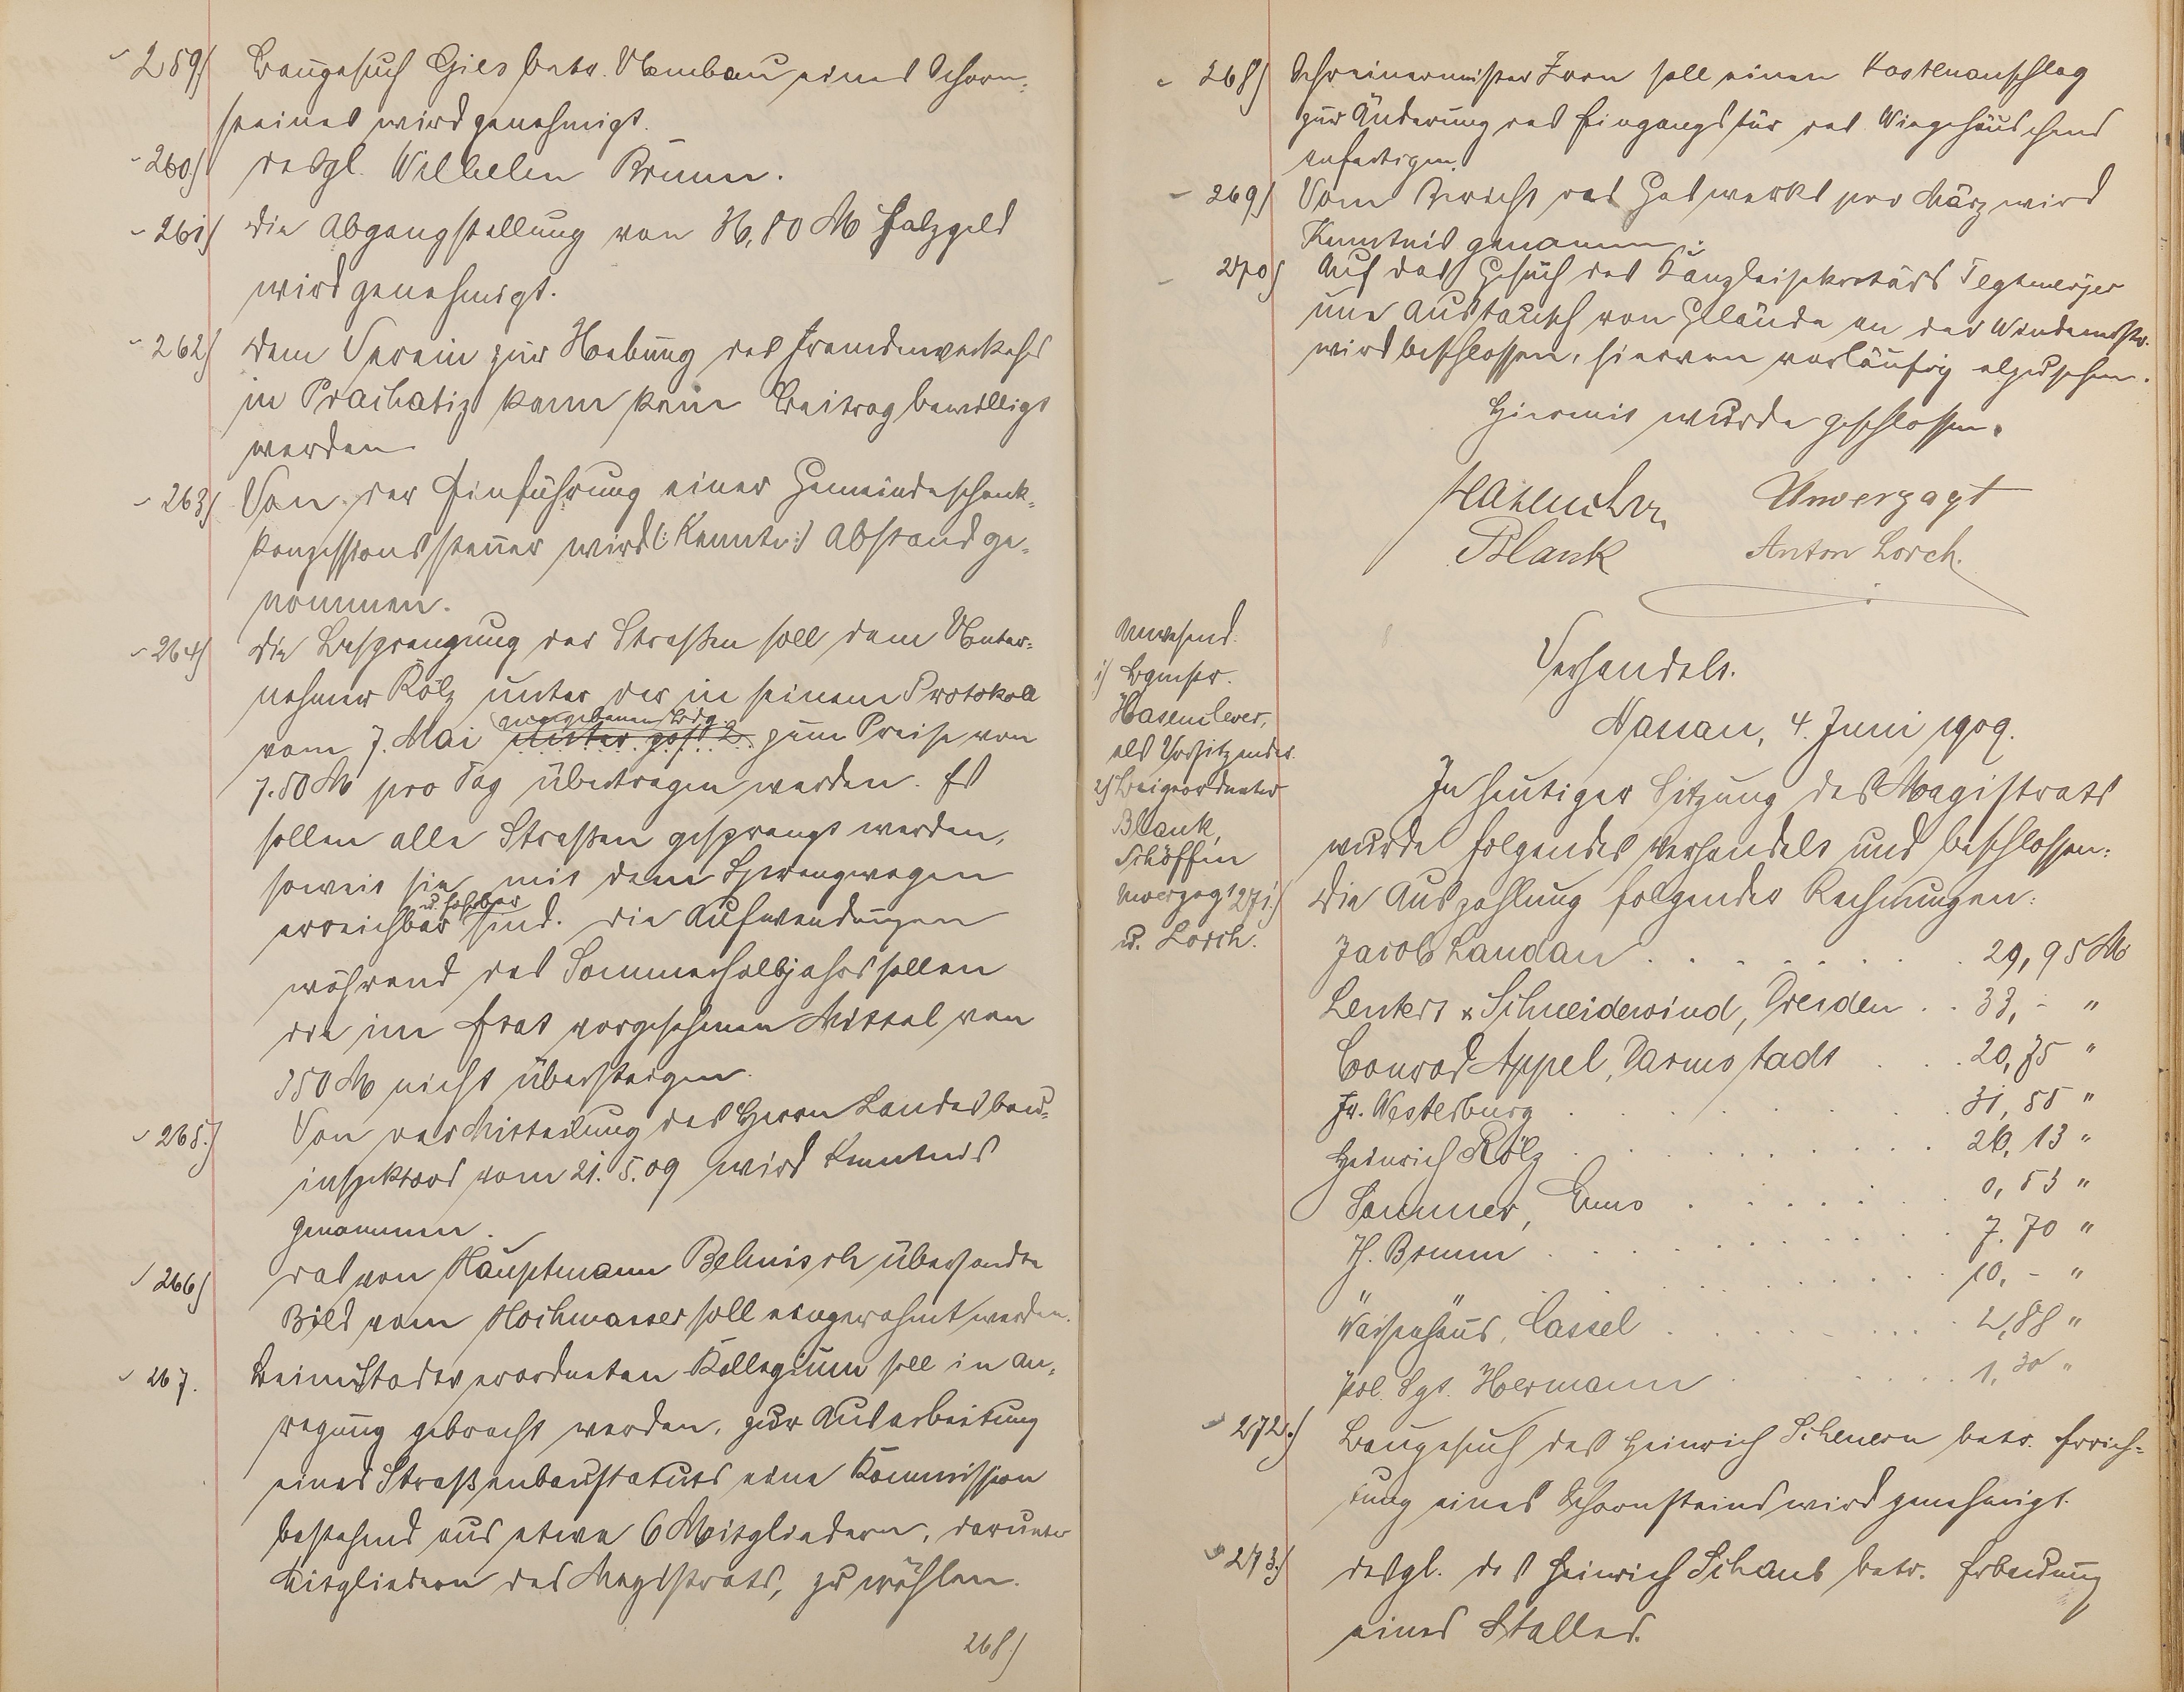 259) Baugesuch Gies betr. Umbau eines Schorn-
steines wird genehmigt.
260) desgl. Wilhelm Brumm.
261) Die Abgangstellung von 36,80 M Holzgeld
wird genehmigt.
262) Dem Verein zur Hebung des Fremdenverkehrs
in Prachatiz kann kein Beitrag bewilligt
werden
263) Von der Einführung einer Gemeindeschank-
konzessionssteuer wird (: :) Abstand ge-
nommen.
264) Die Besprengung der Straßen soll dem Unter-
nehmer Kölz unter der in seinem Protokoll
vom 7. Mai angegebenen Bdg. zum Preise von
7.50 M pro Tag übertragen werden. Es
sollen alle Straßen gesprengt werden,
soweit sie mit dem Sprengwagen
erreichbar u. fahrbar sind. Die Aufwendungen
während des Sommerhalbjahrs sollen
die im Etat vorgesehenen Mittel von
350 M nicht übersteigen.
265.) Von der Mitteilung des Herrn Landesbau-
inspektors vom 21.5.09 wird Kenntnis
genommen.
266) Das von Hauptmann Behnisch übersandte
Bild vom Hochwasser soll eingerahmt werden.
267. Beim Stadtverordneten Kollegium soll in An-
regung gebracht werden, zur Ausarbeitung
eines Straßenbaustatuts eine Kommission
bestehend aus etwa 6 Mitgliedern, darunter
Mitgliedern des Magistrats, zu wählen.
268)
268) Schreinermeister Zorn soll einen Kostenanschlag
zur Änderung des Eingangs für das Wiegehäuschens
anfertigen.
269) Vom Bericht des Gaswerks pro März wird
Kenntnis genommen.
270) Auf das Gesuch des Kanzleisekretärs Tegtmeyer
um Austausch von Gelände an der Windenerstr.
wird beschlossen, hiervon vorläufig abzusehen.
Hiermit wurde geschlossen.
Hasenclever Unverzagt
Blank Anton Lorch.
Verhandelt.
Nassau, 4. Juni 1909.
Anwesend.
1) Bgmstr.
Hasenclever,
als Vorsitzender.
2) Beigeordneter
Blank,
Schöffen
Unverzagt
u. Lorch.
In heutiger Sitzung des Magistrats
wurde folgendes verhandelt und beschlossen:
271.) Die Auszahlung folgender Rechnungen:
Jacob Landau . . . . . . . 29,95 M
Lenkert & Schneidewind, Dresden . . 33,- "
Conrad Appel, Darmstadt . . . 20,75 "
Fr. Westerburg . . . . . . 31,55 "
Heinrich Kölz . . . . . . 26,13 "
Sommer, Ems . . . . . 0,53 "
H. Brumm . . . . . . 7.70 "
" " . . . . . . 10,- "
Waisenhaus, Cassel . . . . . 2,88 "
Pol. Sgt. Hermann . . . . . 1,30 "
272.) Baugesuch des Heinrich Scheuern betr. Errich-
tung eines Schornsteins wird genehmigt.
273.) desgl. des Heinrich Schaub betr. Erbauung
eines Stalles.